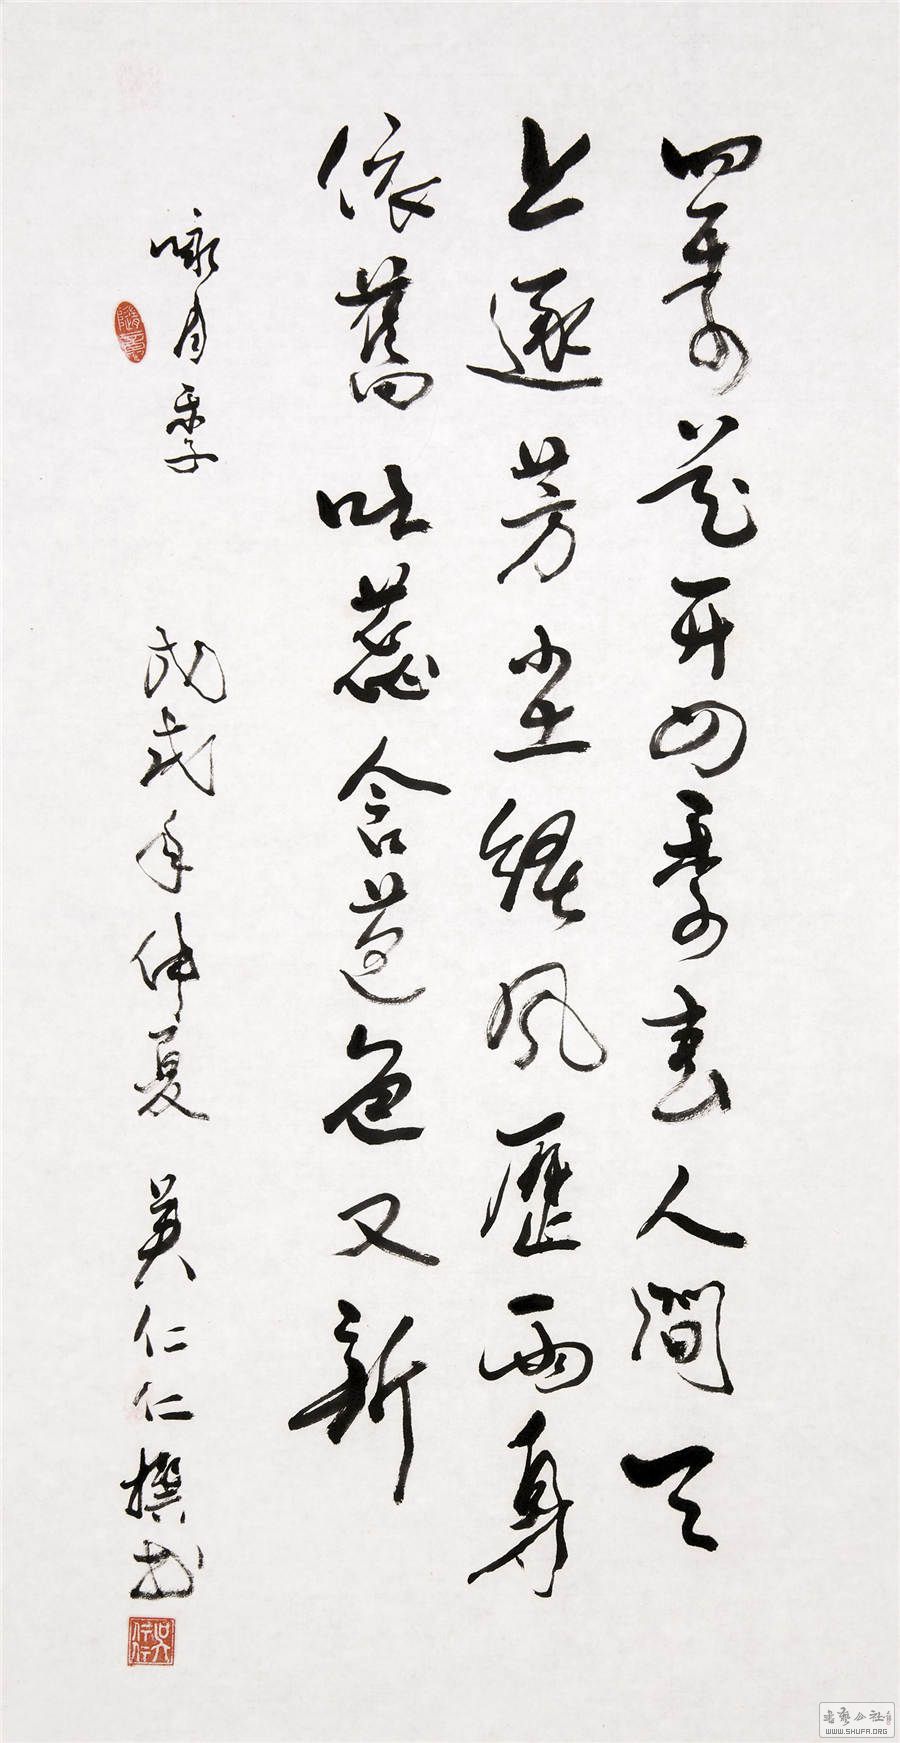 四季花开四季春人間天
上逐芳尘經風歷雨身
依舊吐蕊含苞色又新
咏月季 戊戌年仲夏 吴仁仁撰书
书艺公社
WWW.SHUFA.ORG